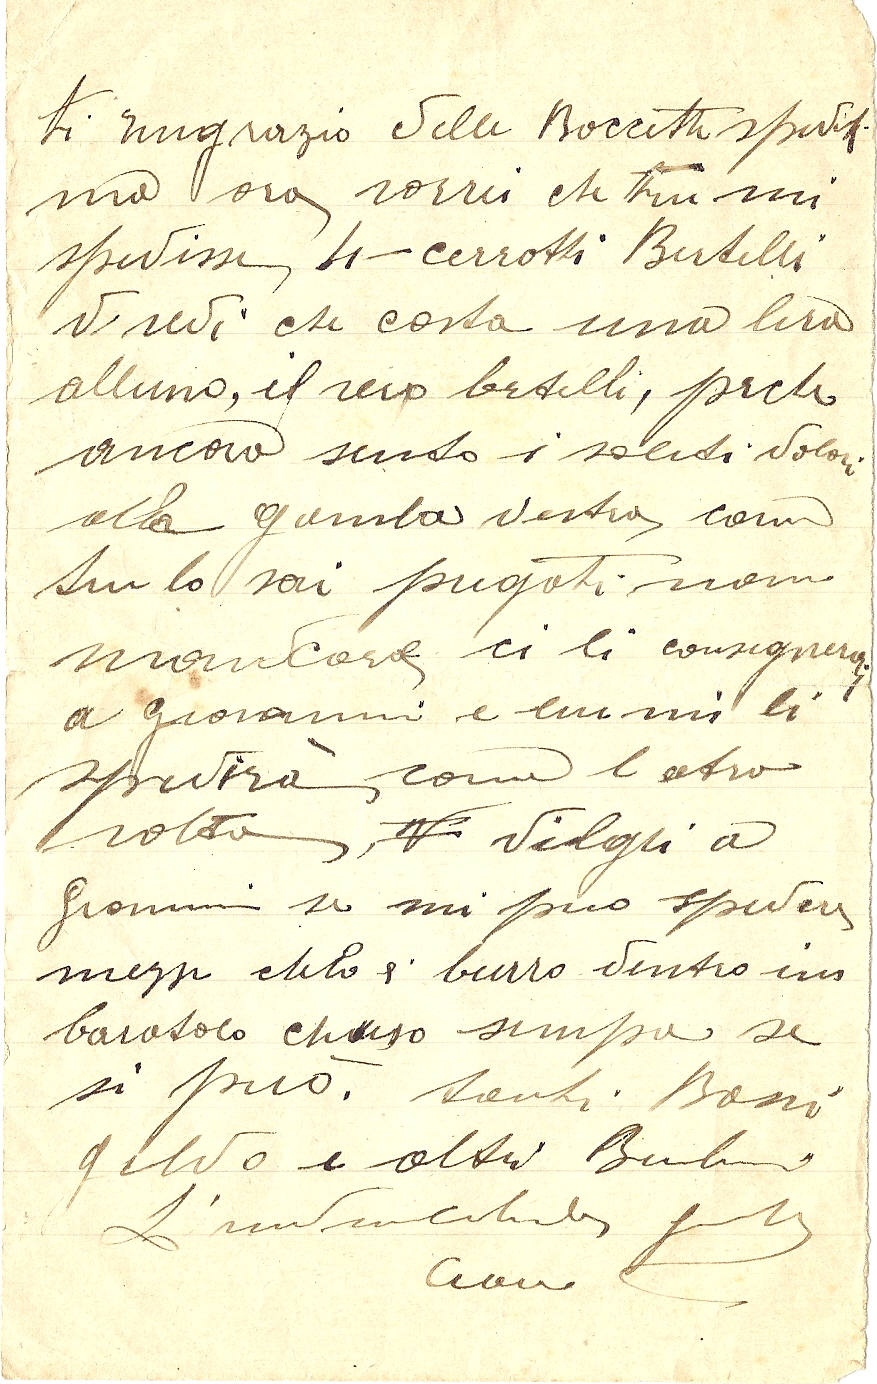 ti rungrazio delle Boccette spedit.
ma ora vorrei che tu mi
spedisse 4 cerrotti Bertelli
vredi che costa una lira
alluno, il vero bertelli, perche
ancora sento i soliti dolori
alla gamba destra, come
tu lo sai pregoti non
mancare, ci li consegnerai
a Giovanni e lui mi li
spedirà, come l atra
volta, dilgli a
Giovanni se mi puo spedere
mezzo chilo di burro dentro un
baratolo chiuso sempre se
si può. tanti Baci
geldo e altri
L'indimenticabile
Ciao